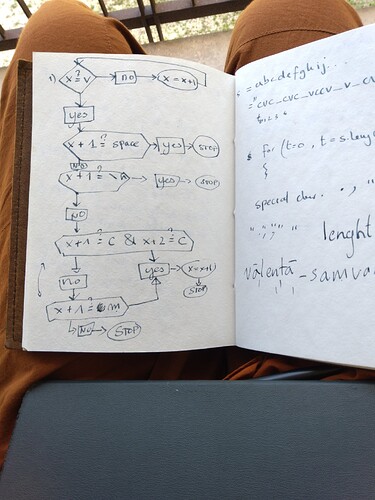 1) x ?= v
no
x = x+1
yes
x + 1 ?= space
yes
STOP
NO
x + 1 ?=
yes
STOP
NO
x + 1 ?= C & x+2 ?= C
no
yes
x = x+1
STOP
x + 1 ?= m
NO
STOP
= abcdefghij...
= "cvc_cvc_vccv_v_cv
for (t=0, t=s.leng
{
special char.
lenght
vālentā - samva